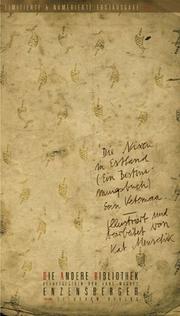 LIMITIERTE & NUMERIERTE ERSTAUSGABE
Die Nixen
in Estland
(Ein Bestim-
mungsbuch)
Enn Vetemaa
Illustriert und
von
Kat Menschik
DIE ANDERE BIBLIOTHEK
HERAUSGEGEBEN VON HANS MAGNUS
ENZENSBERGER
EICHBORN VERLAG